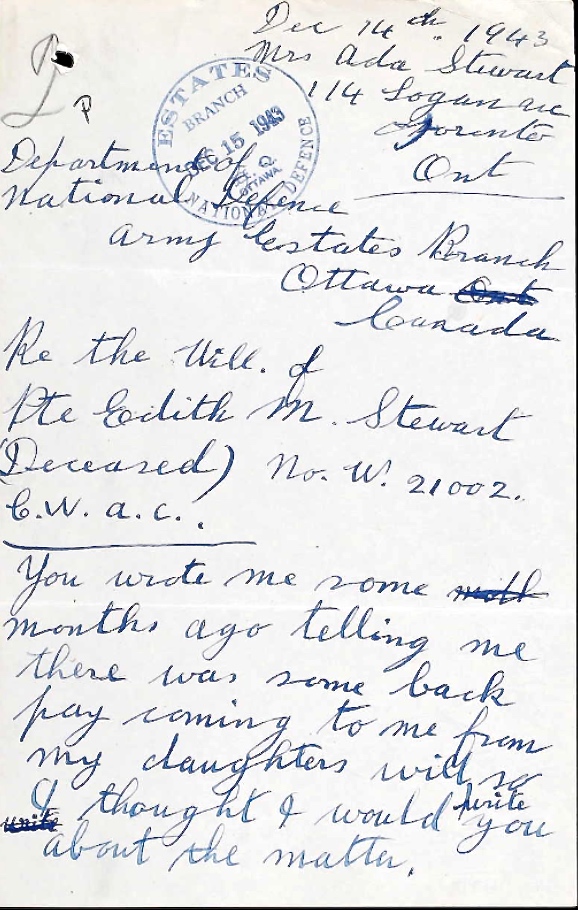 Dec 14th 1943
Mrs Ada Stewart
114 Logan ave
Toronto
Ont
P
ESTATES
BRANCH
DEC 15 1943
OTTAWA
NATIONAL DEFENCE
Department of
National Defence
Army Estates Branch
Ottawa Ont
Canada
Re the Will. of
Pte Edith M. Stewart
(Deceased) No. W. 21002.
C.W.A.C.
You wrote me some
months ago telling me
there was some back
pay coming to me from
my daughters will so
I thought I would write you
write
about the matter.